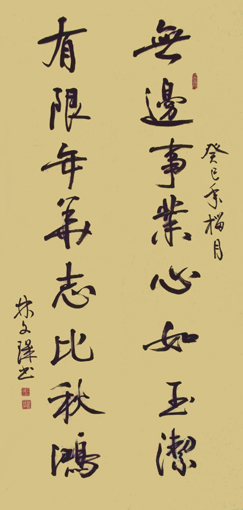 癸巳季榴月
無邊事業心如玉潔
有限年華志比秋鴻
林文瑋书